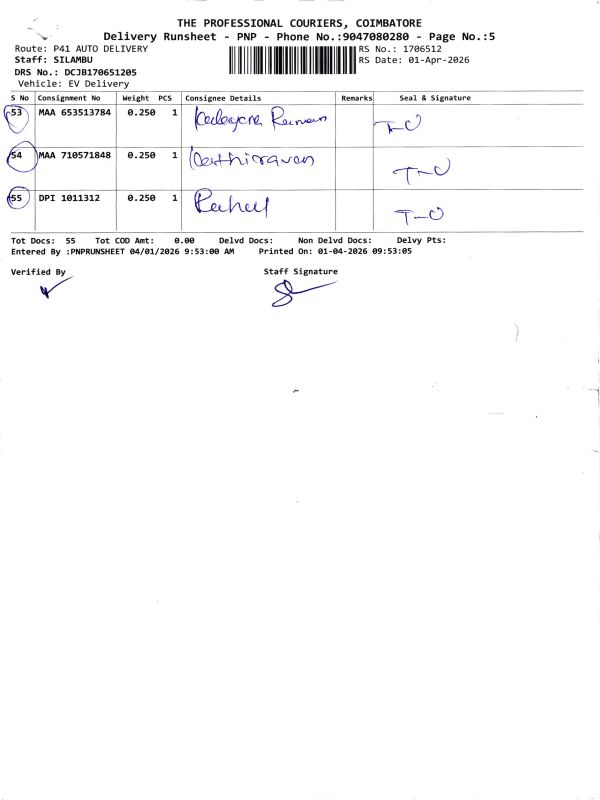 THE PROFESSIONAL COURIERS, COIMBATORE
Delivery Runsheet - PNP - Phone No.:9047080280 - Page No.:5
Route: P41 AUTO DELIVERY RS No.: 1706512
Staff: SILAMBU RS Date: 01-Apr-2026
DRS No.: DCJB170651205
Vehicle: EV Delivery
S No Consignment No Weight PCS Consignee Details Remarks Seal & Signature
53 MAA 653513784 0.250 1 T-O
54 MAA 710571848 0.250 1 Kathiravan T-O
55 DPI 1011312 0.250 1 Rahul T-O
Tot Docs: 55 Tot COD Amt: 0.00 Delvd Docs: Non Delvd Docs: Delvy Pts:
Entered By :PNPRUNSHEET 04/01/2026 9:53:00 AM Printed On: 01-04-2026 09:53:05
Verified By Staff Signature